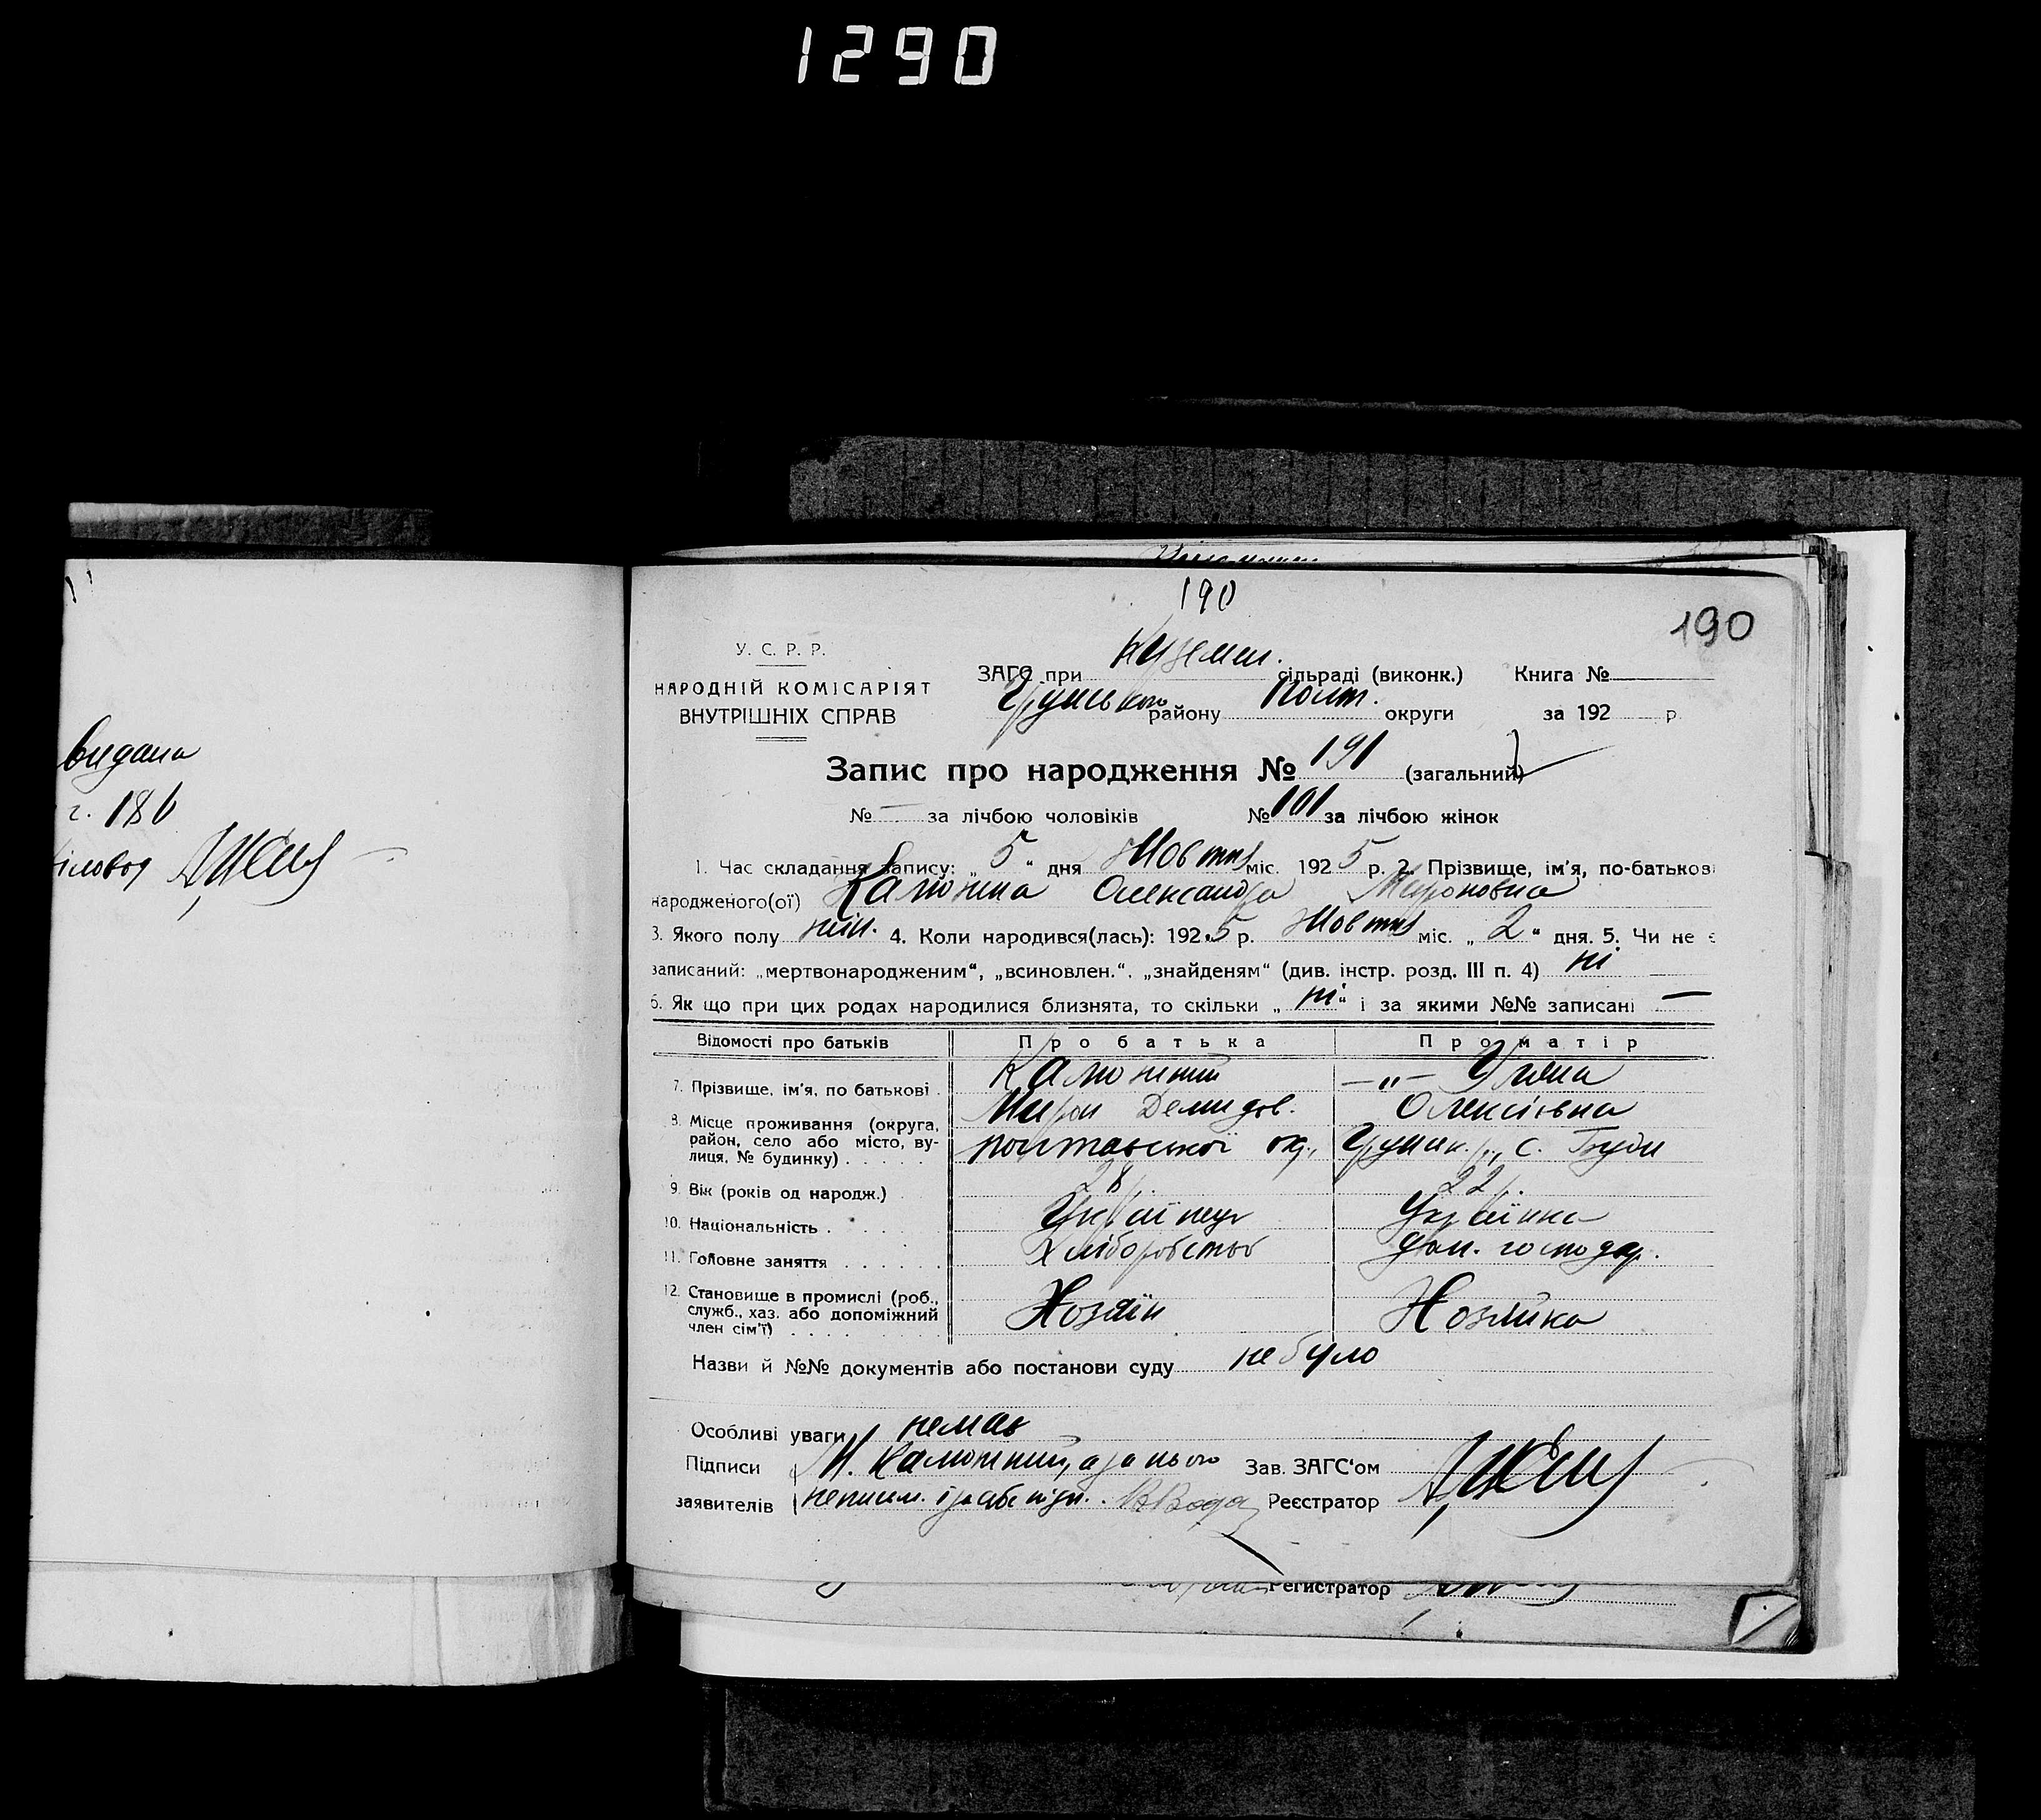 1290
190
190
У. С. Р. Р.
НАРОДНІЙ КОМІСАРІЯТ
ВНУТРІШНІХ СПРАВ
ЗАГС при Куземен. сільраді (виконк.) Книга №
Грунського району Полт. округи за 192 р.
Запис про народження № 191 (загальний)
№ — за лічбою чоловіків № 101 за лічбою жінок
1. Час складання запису: „ 5 “ дня Жовтня міс. 1925 р. 2. Прізвище, ім'я, по-батькові
народженого(ої) Калюжна Олександра Мироновна
3. Якого полу жін. 4. Коли народився(лась): 1925 р. Жовтня міс. „ 2 “ дня. 5. Чи не є
записаний: „мертвонародженим“, „всиновлен.“, „знайденям“ (див. інстр. розд. III п. 4) ні
6. Як що при цих родах народилися близнята, то скільки „ ні “ і за якими №№ записані —
Відомості про батьків Про батька Про матір
7. Прізвище, ім'я, по батькові . Калюжний Мирон Демидов. —„— Уляна Олексіївна
8. Місце проживання (округа, район, село або місто, вулиця, № будинку) . . . . . Полтавської ок., Грунск. р., с. Буди
9. Вік (років од народж.) 28 р. 22 р.
10. Національність . . . . . Українец Українка
11. Головне заняття . . . . . . Хліборобство дом. господар.
12. Становище в промислі (роб., служб., хаз. або допоміжний член сім'ї) . . . . . Хозяїн Хозяйка
Назви й №№ документів або постанови суду не було
Особливі уваги немає
Підписи М. Калюжний, а за нього Зав. ЗАГС'ом
заявителів неписьм. і за себе підп. Реєстратор
Регистратор
видана
г. 186